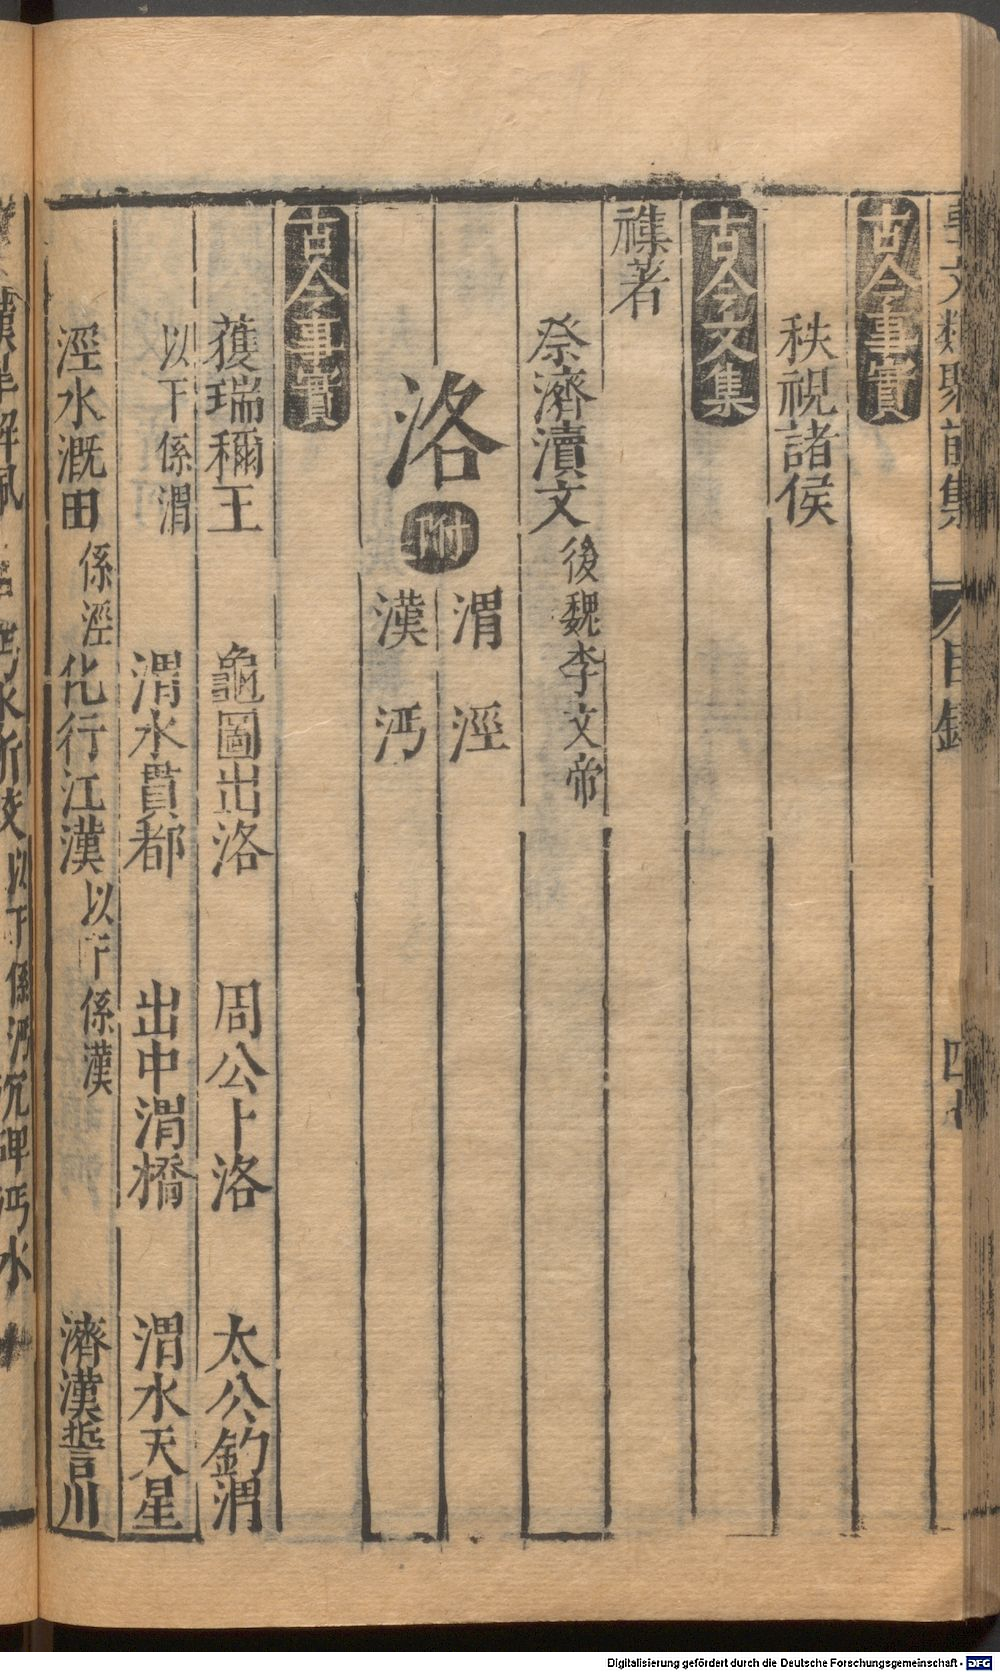 事文類聚前集 目錄 四七
古今事實
秩視諸侯
古今文集
襍著
祭濟瀆文 後魏李文帝
洛 附 渭 涇 漢 沔
古今事實
蒦瑞稱王 龜圖出洛 周公卜洛 太公釣渭
以下係渭 渭水貫都 出中渭橋 渭水天星
涇水溉田 係涇 化行江漢 以下係漢 濟漢誓川
漢皋解佩 沔水斫蛟 以下係沔 沉碑沔水
Digitalisierung gefördert durch die Deutsche Forschungsgemeinschaft - DFG